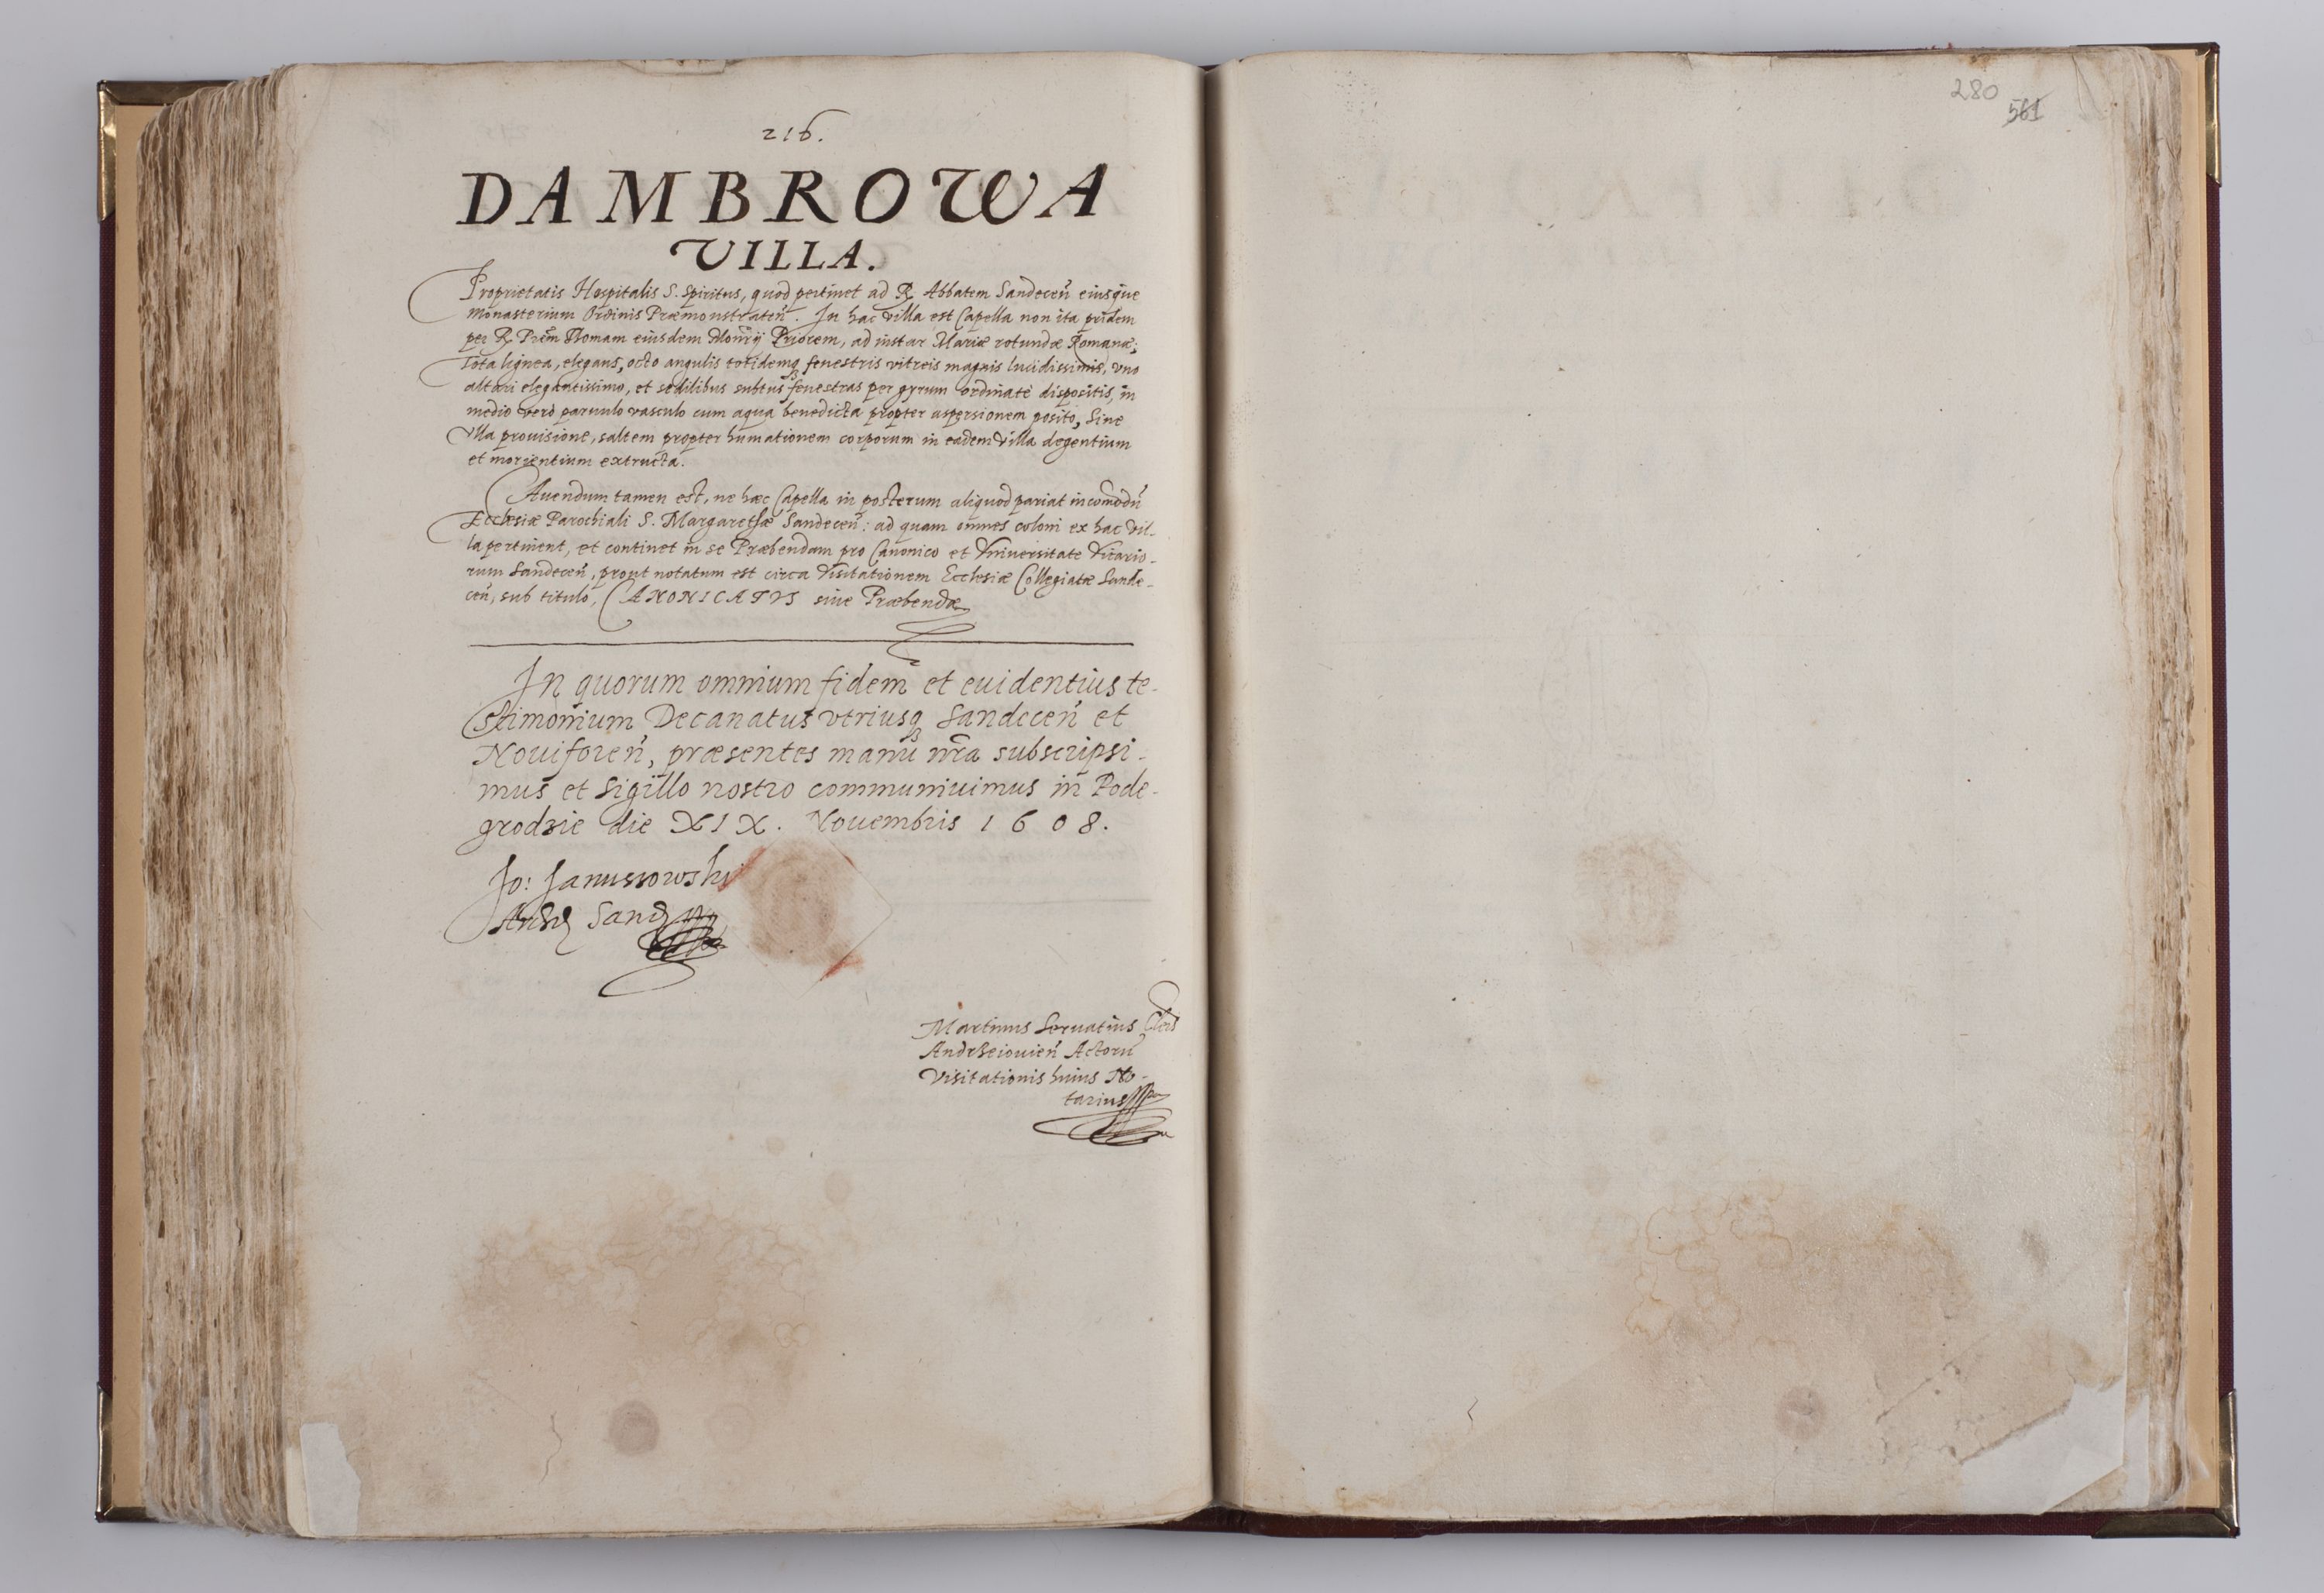 216.
DAMBROWA
VILLA.
Proprietatis Hospitalis S. Spiritus, quod pertinet ad R. Abbatem Sandeceñ eiusque
Monasterium Ordinis Præmonstrateñ. In hac villa est Capella non ita pridem
per R. Prem̃ Thomam eiusdem Monrij Priorem, ad instar Mariæ rotundæ Romanæ;
Tota lignea, elegans, octo angulis totidemq₃ fenestris vitreis magnis lucidissimis, vno
altari elegantissimo, et sedilibus subtus fenestras per gyrum ordinatè dispositis, in
medio verò paruulo vasculo cum aqua benedicta propter aspersionem posito, Sine
vlla prouisione, saltem propter humationem corporum in eadem villa degentium
et morientium extructa.
Cauendum tamen est, ne hæc Capella in posterum aliquod pariat incomodũ
Ecclesiæ Parochiali S. Margarethæ Sandeceñ: ad quam omnes coloni ex hac vil-
la pertinent, et continet in se Præbendam pro Canonico et Vniuersitate Vicario-
rum Sandeceñ, prout notatum est circa Visitationem Ecclesiæ Collegiatæ Sande-
ceñ, sub titulo, CANONICATVS siue Præbendæ
In quorum omnium fidem et euidentius te-
stimonium Decanatus vtriusq₃ Sandeceñ et
Nouiforeñ, præsentes manu nr̃a subscripsi-
mus et Sigillo nostro communiuimus in Pode-
grodzie die XIX. Nouembris 1608.
Jo: Januszowski
Archid Sand
Martinus Seruatius Cler
Andrzeiouieñ Actorũ
Visitationis huius No-
tarius
280
561